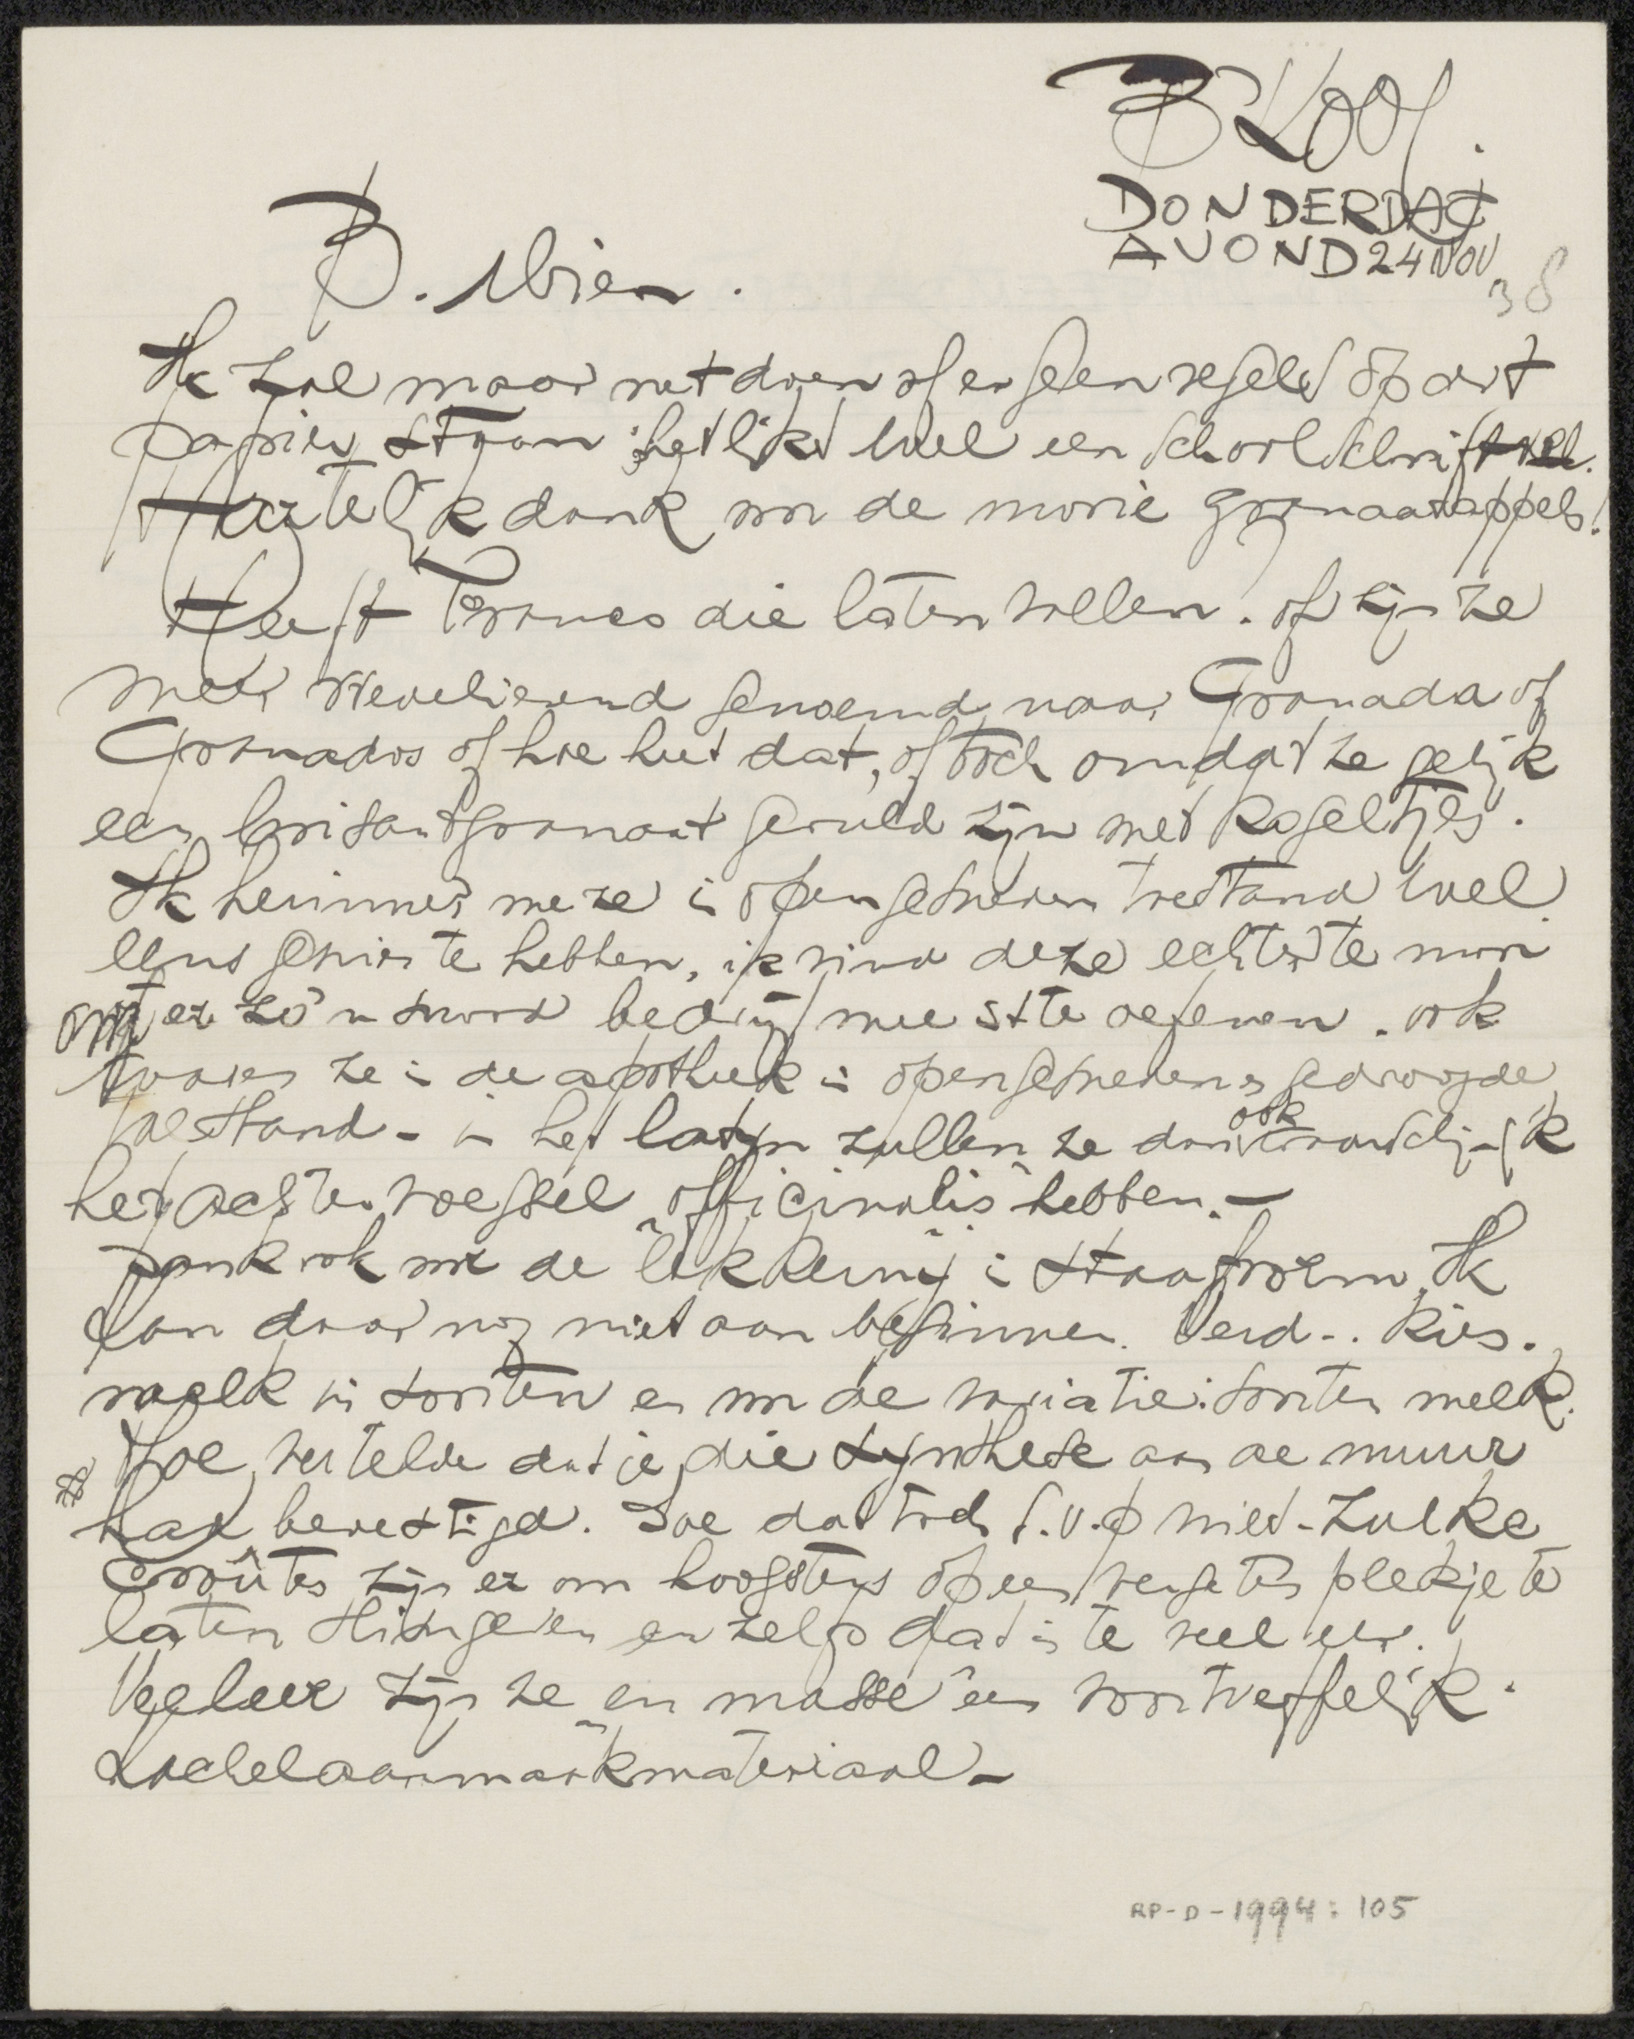 B Kooy.
DONDERDAG
AVOND 24 NOV
38
B. Wien.
Ik zal maar net doen of er geen regels op dit
papier staan; het lijkt wel een schoolschriftvel.
Hartelijk dank voor de mooie granaatappels!
Heeft Franco die laten vallen. of zijn ze
meer stevelierend genoemd naar Granada of
Granados of hoe heet dat, of toch omdat ze gelijk
een brisantgranaat gevuld zijn met kogeltjes.
Ik herinner me ze in opengesneden toestand wel
eens gezien te hebben, ik vind deze echter te mooi
om er zo'n snood bedrijf mee uit te oefenen. ook
waren ze in de apotheek in opengesneden en gedroogde
toestand - in het latijn zullen ze dan ook waarschijnlijk
het achtervoegsel "officinalis" hebben. -
Dank ook voor de "lekkernij" in staafvorm. Ik
kan daar nog niet aan beginnen. Verd.. kies.
melk in soorten en voor de variatie: soorten melk.
vertelde dat je die synthese aan de muur
had bevestigd. Doe dat toch s.v.p niet. Zulke
croûtes zijn er om hoogstens op een vergeten plekje te
laten slingeren en zelfs dat is te veel eer.
Veeleer zijn ze "en masse" een voortreffelijk
kachelaanmaakmateriaal -
RP-D-1994: 105